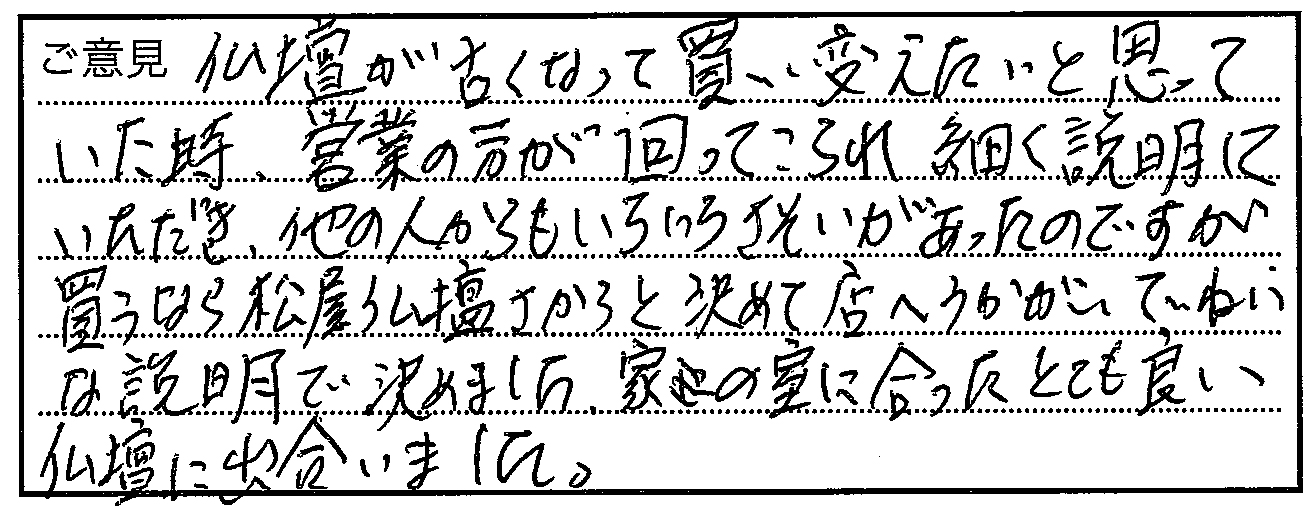 ご意見 仏壇が古くなって買い変えたいと思って
いた時、営業の方が回ってこられ細く説明して
いただき、他の人からもいろいろさそいがあったのですが
買うなら松屋仏壇さからと決めて店へうかがいていねい
な説明で決めました。家の室に合ったとても良い
仏壇に出合いました。